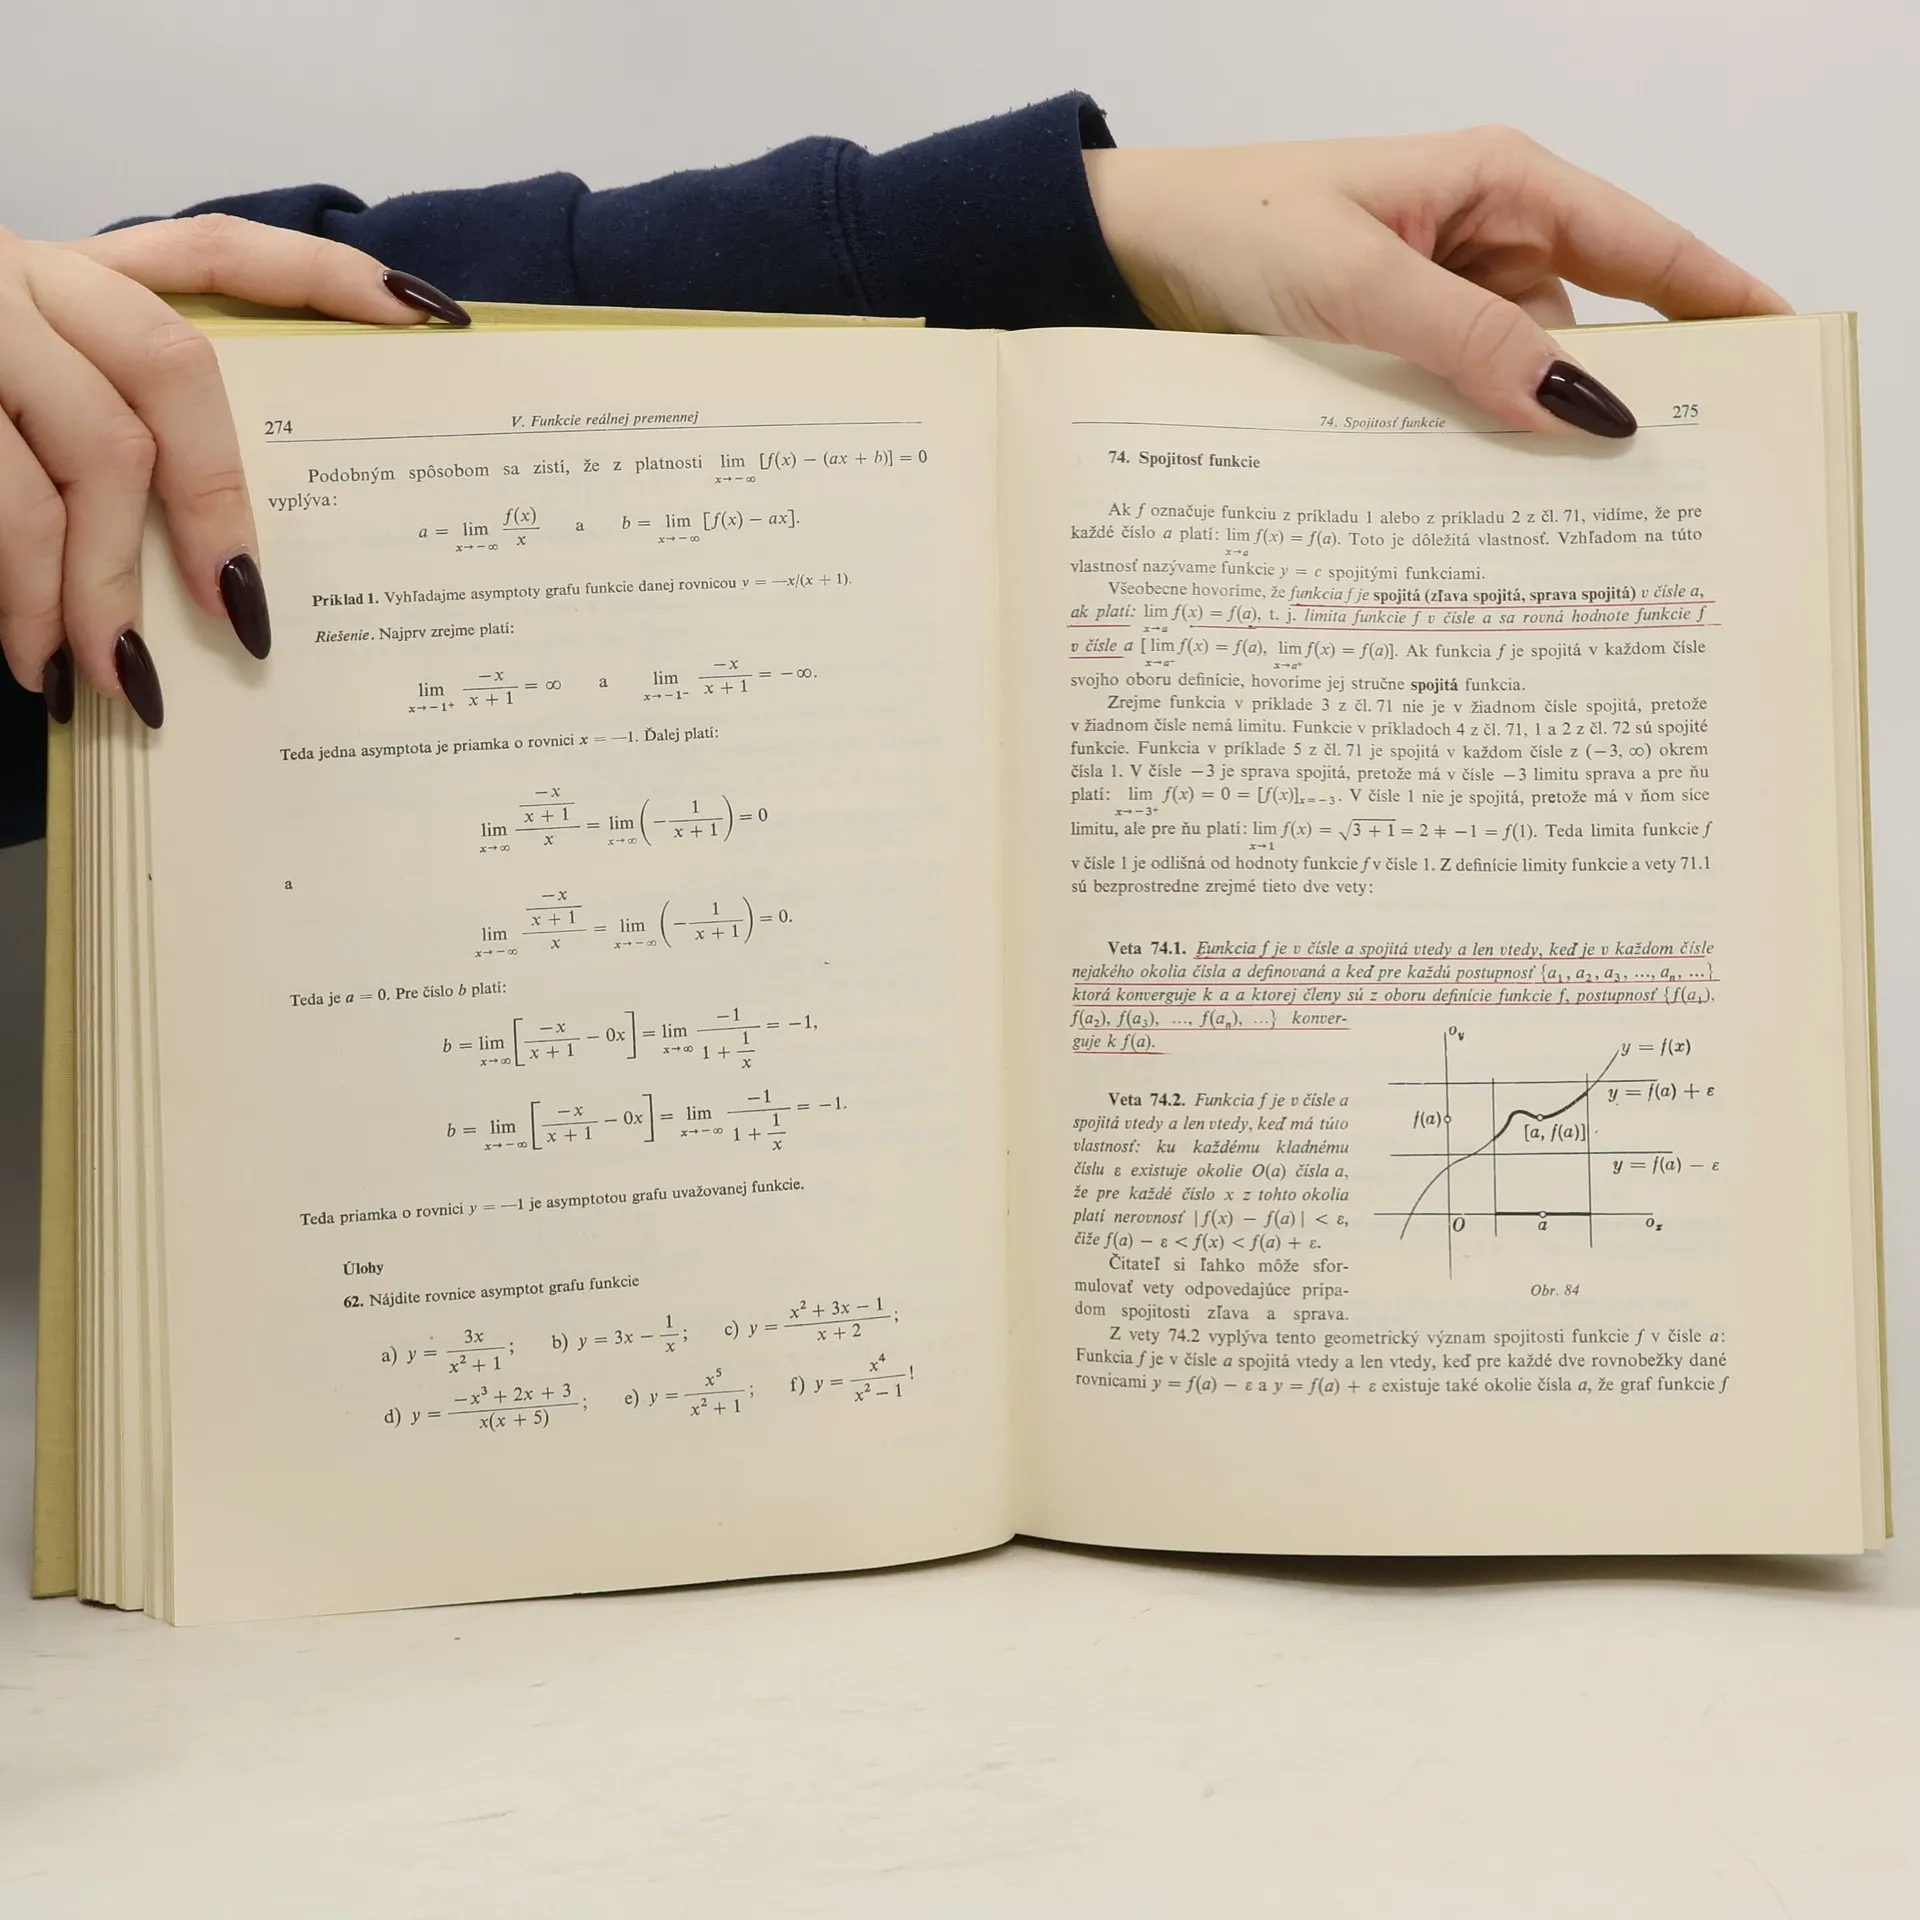 274
V. Funkcie reálnej premennej
Podobným spôsobom sa zistí, že z platnosti lim [f(x) − (ax + b)] = 0
x→−∞
vyplýva:
a = lim f(x)/x a b = lim [f(x) − ax].
x→−∞ x→−∞
Príklad 1. Vyhľadajme asymptoty grafu funkcie danej rovnicou y = −x/(x + 1).
Riešenie. Najprv zrejme platí:
lim −x/(x + 1) = ∞ a lim −x/(x + 1) = −∞.
x→−1⁺ x→−1⁻
Teda jedna asymptota je priamka o rovnici x = −1. Ďalej platí:
lim (−x/(x + 1))/x = lim (−1/(x + 1)) = 0
x→∞ x→∞
a
lim (−x/(x + 1))/x = lim (−1/(x + 1)) = 0.
x→−∞ x→−∞
Teda je a = 0. Pre číslo b platí:
b = lim [−x/(x + 1) − 0x] = lim −1/(1 + 1/x) = −1,
x→∞ x→∞
b = lim [−x/(x + 1) − 0x] = lim −1/(1 + 1/x) = −1.
x→−∞ x→−∞
Teda priamka o rovnici y = −1 je asymptotou grafu uvažovanej funkcie.
Úlohy
62. Nájdite rovnice asymptot grafu funkcie
a) y = 3x/(x² + 1); b) y = 3x − 1/x; c) y = (x² + 3x − 1)/(x + 2);
d) y = (−x³ + 2x + 3)/(x(x + 5)); e) y = x⁵/(x² + 1); f) y = x⁴/(x² − 1)!
74. Spojitosť funkcie
275
74. Spojitosť funkcie
Ak f označuje funkciu z príkladu 1 alebo z príkladu 2 z čl. 71, vidíme, že pre
každé číslo a platí: lim f(x) = f(a). Toto je dôležitá vlastnosť. Vzhľadom na túto
x→a
vlastnosť nazývame funkcie y = c spojitými funkciami.
Všeobecne hovoríme, že funkcia f je spojitá (zľava spojitá, sprava spojitá) v čísle a,
ak platí: lim f(x) = f(a), t. j. limita funkcie f v čísle a sa rovná hodnote funkcie f
x→a
v čísle a [lim f(x) = f(a), lim f(x) = f(a)]. Ak funkcia f je spojitá v každom čísle
x→a⁻ x→a⁺
svojho oboru definície, hovoríme jej stručne spojitá funkcia.
Zrejme funkcia v príklade 3 z čl. 71 nie je v žiadnom čísle spojitá, pretože
v žiadnom čísle nemá limitu. Funkcie v príkladoch 4 z čl. 71, 1 a 2 z čl. 72 sú spojité
funkcie. Funkcia v príklade 5 z čl. 71 je spojitá v každom čísle z (−3, ∞) okrem
čísla 1. V čísle −3 je sprava spojitá, pretože má v čísle −3 limitu sprava a pre ňu
platí: lim f(x) = 0 = [f(x)]ₓ₌₋₃. V čísle 1 nie je spojitá, pretože má v ňom síce
x→−3⁺
limitu, ale pre ňu platí: lim f(x) = √(3 + 1) = 2 ≠ −1 = f(1). Teda limita funkcie f
x→1
v čísle 1 je odlišná od hodnoty funkcie f v čísle 1. Z definície limity funkcie a vety 71.1
sú bezprostredne zrejmé tieto dve vety:
Veta 74.1. Funkcia f je v čísle a spojitá vtedy a len vtedy, keď je v každom čísle
nejakého okolia čísla a definovaná a keď pre každú postupnosť {a₁, a₂, a₃, ..., aₙ, ...}
ktorá konverguje k a a ktorej členy sú z oboru definície funkcie f, postupnosť {f(a₁),
f(a₂), f(a₃), ..., f(aₙ), ...} konver-
guje k f(a).
Veta 74.2. Funkcia f je v čísle a
spojitá vtedy a len vtedy, keď má túto
vlastnosť: ku každému kladnému
číslu ε existuje okolie O(a) čísla a,
že pre každé číslo x z tohto okolia
platí nerovnosť |f(x) − f(a)| < ε,
čiže f(a) − ε < f(x) < f(a) + ε.
Čitateľ si ľahko môže sfor-
mulovať vety odpovedajúce prípa-
dom spojitosti zľava a sprava.
oy
y = f(x)
y = f(a) + ε
f(a)
[a, f(a)]
y = f(a) − ε
O
a
oₓ
Obr. 84
Z vety 74.2 vyplýva tento geometrický význam spojitosti funkcie f v čísle a:
Funkcia f je v čísle a spojitá vtedy a len vtedy, keď pre každé dve rovnobežky dané
rovnicami y = f(a) − ε a y = f(a) + ε existuje také okolie čísla a, že graf funkcie f